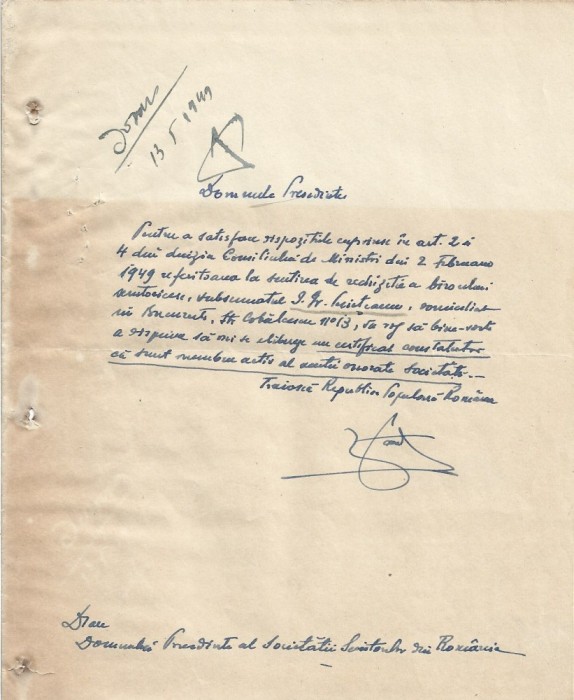 Dosar
13 5 1949
Domnule Președinte
Pentru a satisface dispozițiile cuprinse în art. 2 și
4 din decizia Consiliului de Miniștri din 2 Februarie
1949 referitoare la scutirea de rechiziție a biroului
scriitoricesc, subsemnatul I. Gr. domiciliat
în București, str Cobălcescu no 13, vă rog să bine-voiți
a dispune să mi se elibereze un certificat constatator
că sunt membru activ al acestei onorate societăți.—
Trăiască Republica Populară Română
D-sale
Domnului Președinte al Societății Scriitorilor din România